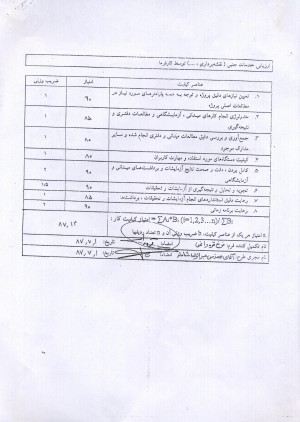 ارزیابی خدمات جنبی ( نقشه‌برداری ، ... ) توسط کارفرما
عناصر کیفیت امتیاز ضریب وزنی
۱. تعیین نیازهای دقیق پروژه و توجه به همه پارامترهای مورد نیاز در مطالعات اصلی پروژه ۹۰ ۱
۲. متدلوژی انجام کارهای میدانی ، آزمایشگاهی و مطالعات دفتری و نتیجه‌گیری ۸۵ ۱
۳. جمع‌آوری و بررسی دقیق مطالعات میدانی و دفتری انجام شده و سایر مدارک موجود ۸۰ ۱
۴. کیفیت دستگاه‌های مورد استفاده و مهارت کاربران ۸۰ ۱
۵. کامل بودن ، دقت و صحت نتایج آزمایشات و برداشت‌های میدانی و آزمایشگاهی ۹۰ ۲
۶. تجزیه و تحلیل و نتیجه‌گیری از آزمایشات و تحقیقات ۹۰ ۱/۵
۷. رعایت دقیق استانداردهای انجام آزمایشات و تحقیقات ، برداشت‌ها ۸۵ ۱
۸. رعایت برنامه زمانی ۹۰ ۲
امتیاز کیفیت کار : = ∑Ai*Bi (i=1,2,3...n)/∑Bi ۸۷,۱۴
Ai امتیاز هر یک از عناصر کیفیت، Bi ضریب وزنی آن و n تعداد ردیفها
نام تکمیل کننده فرم: امضاء تاریخ:
نام مجری طرح: آقای مهندس امضاء تاریخ: